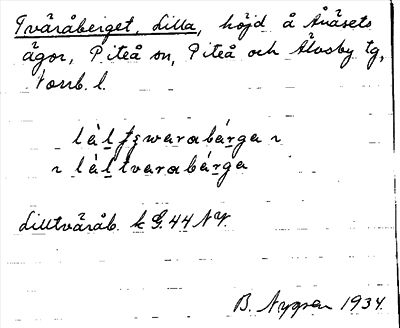 Tväråberget, Lilla, höjd å Ånäsets
ägor, Piteå sn, Piteå och Älvsby tg,
Norrb. l.
lìlṭṣwarabárga ~
~ lìltvarabárga
Lilltväråb. k G. 44 NV.
B. Nygren 1934.